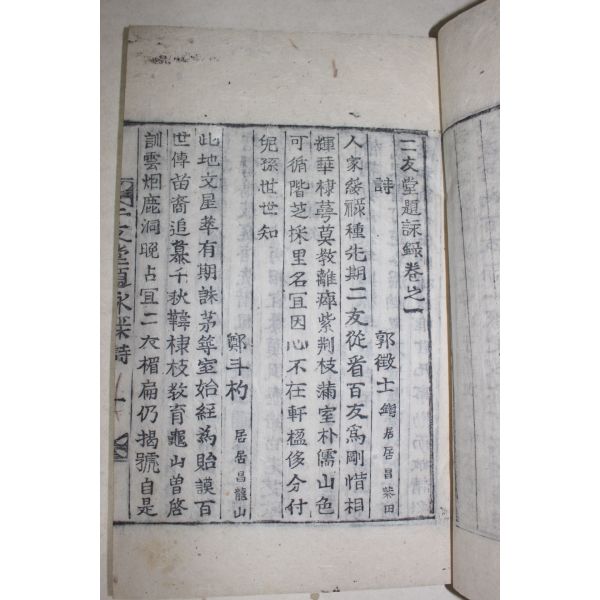 二友堂題詠錄卷之一
詩
郭徵士 鍾 居居昌茶田
人家發祿種先期二友從看百友爲剛惜相
輝華棣萼莫教離瘁紫荆枝蒲室朴儒山色
可循階芝採里名宜因心不在軒楹侈分付
兒孫世世知
鄭斗杓 居居昌龍山
此地文星萃有期誅茅等室始經爲貽謨百
世傳苗裔追慕千秋韡棣枝敎育龜山曽啓
訓雲烟鹿洞晩占宜二友楣扁仍揭號自是
二友堂題詠錄 詩 一